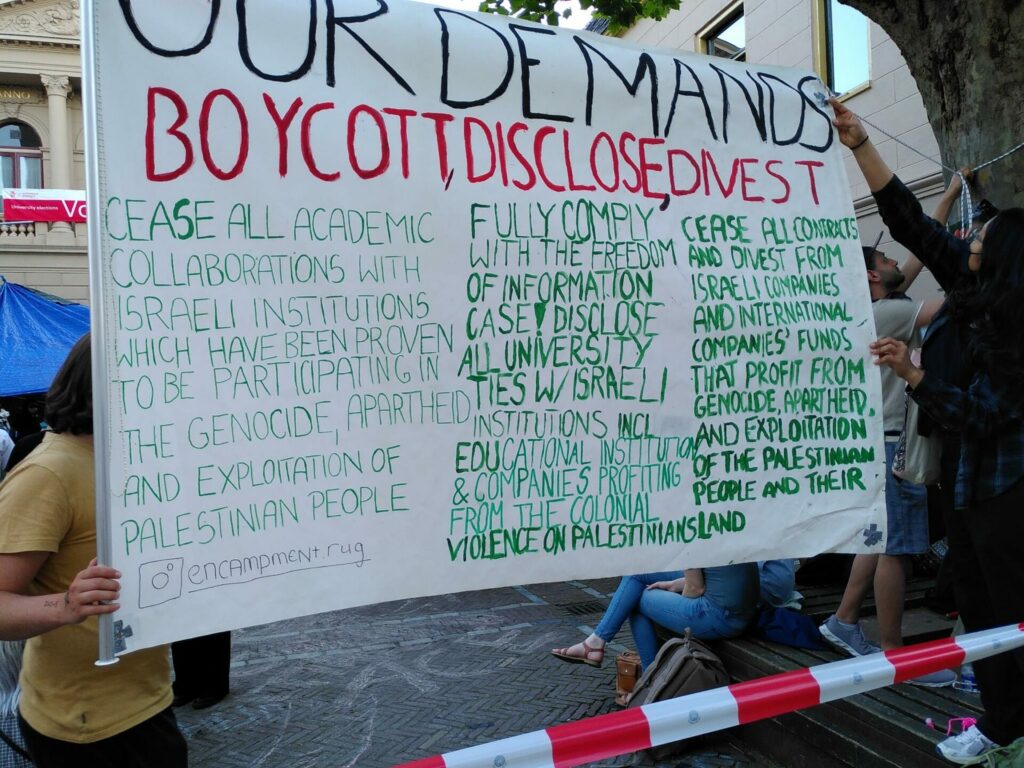 OUR DEMANDS
BOYCOTT, DISCLOSE, DIVEST
CEASE ALL ACADEMIC
COLLABORATIONS WITH
ISRAELI INSTITUTIONS
WHICH HAVE BEEN PROVEN
TO BE PARTICIPATING IN
THE GENOCIDE, APARTHEID
AND EXPLOITATION OF
PALESTINIAN PEOPLE
encampment.rug
FULLY COMPLY
WITH THE FREEDOM
OF INFORMATION
CASE DISCLOSE
ALL UNIVERSITY
TIES W/ ISRAELI
INSTITUTIONS INCL
EDUCATIONAL INSTITUTION
& COMPANIES PROFITING
FROM THE COLONIAL
VIOLENCE ON PALESTINIANS LAND
CEASE ALL CONTRACTS
AND DIVEST FROM
ISRAELI COMPANIES
AND INTERNATIONAL
COMPANIES' FUNDS
THAT PROFIT FROM
GENOCIDE, APARTHEID,
AND EXPLOITATION
OF THE PALESTINIAN
PEOPLE AND THEIR
University elections